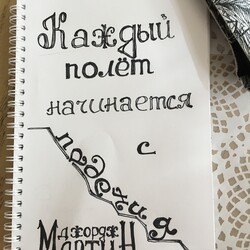 Каждый
полёт
начинается
с
падения
Джордж
Мартин